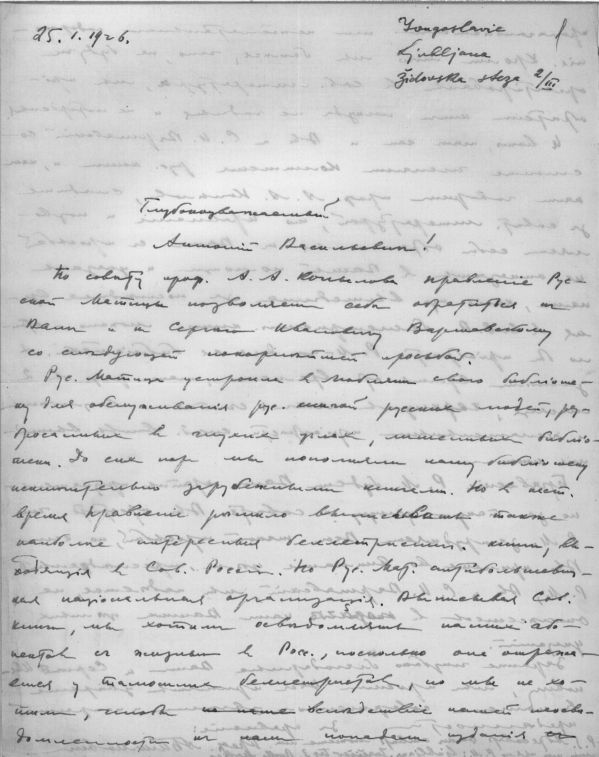 25. I. 1926.
Yougoslavie
Ljubljana
Židovska steza 2/III
Глубокоуважаемый
Антоній Васильевич!
По совѣту проф. А. А. Копылова правленіе Рус-
ской Матицы позволяет себѣ обратиться к
Вам и к Сергѣю Ивановичу Варшавскому
со слѣдующей покорнѣйшей просьбой.
Рус. Матица устроила в Любляне свою библіоте-
ку для обслуживанія рус. книгой русских людей, раз-
бросанных в глухих углах, лишенных библіо-
теки. До сих пор мы пополняли нашу библіотеку
исключительно зарубежными книгами. Но в наст.
время правленіе рѣшило выписывать также
наиболѣе интересныя беллетристич. книги, вы-
ходящія в Сов. Россіи. Но Рус. Мат. антибольшевиц-
кая національная организація. Выписывая Сов.
книги, мы хотим освѣдомлять наших або-
нентов о жизни в Росс., поскольку она отража-
ется у тамошних беллетристов, но мы не хо-
тим, чтобы вслѣдствіе нашей неосвѣ-
домленности к нам попадали изданія с